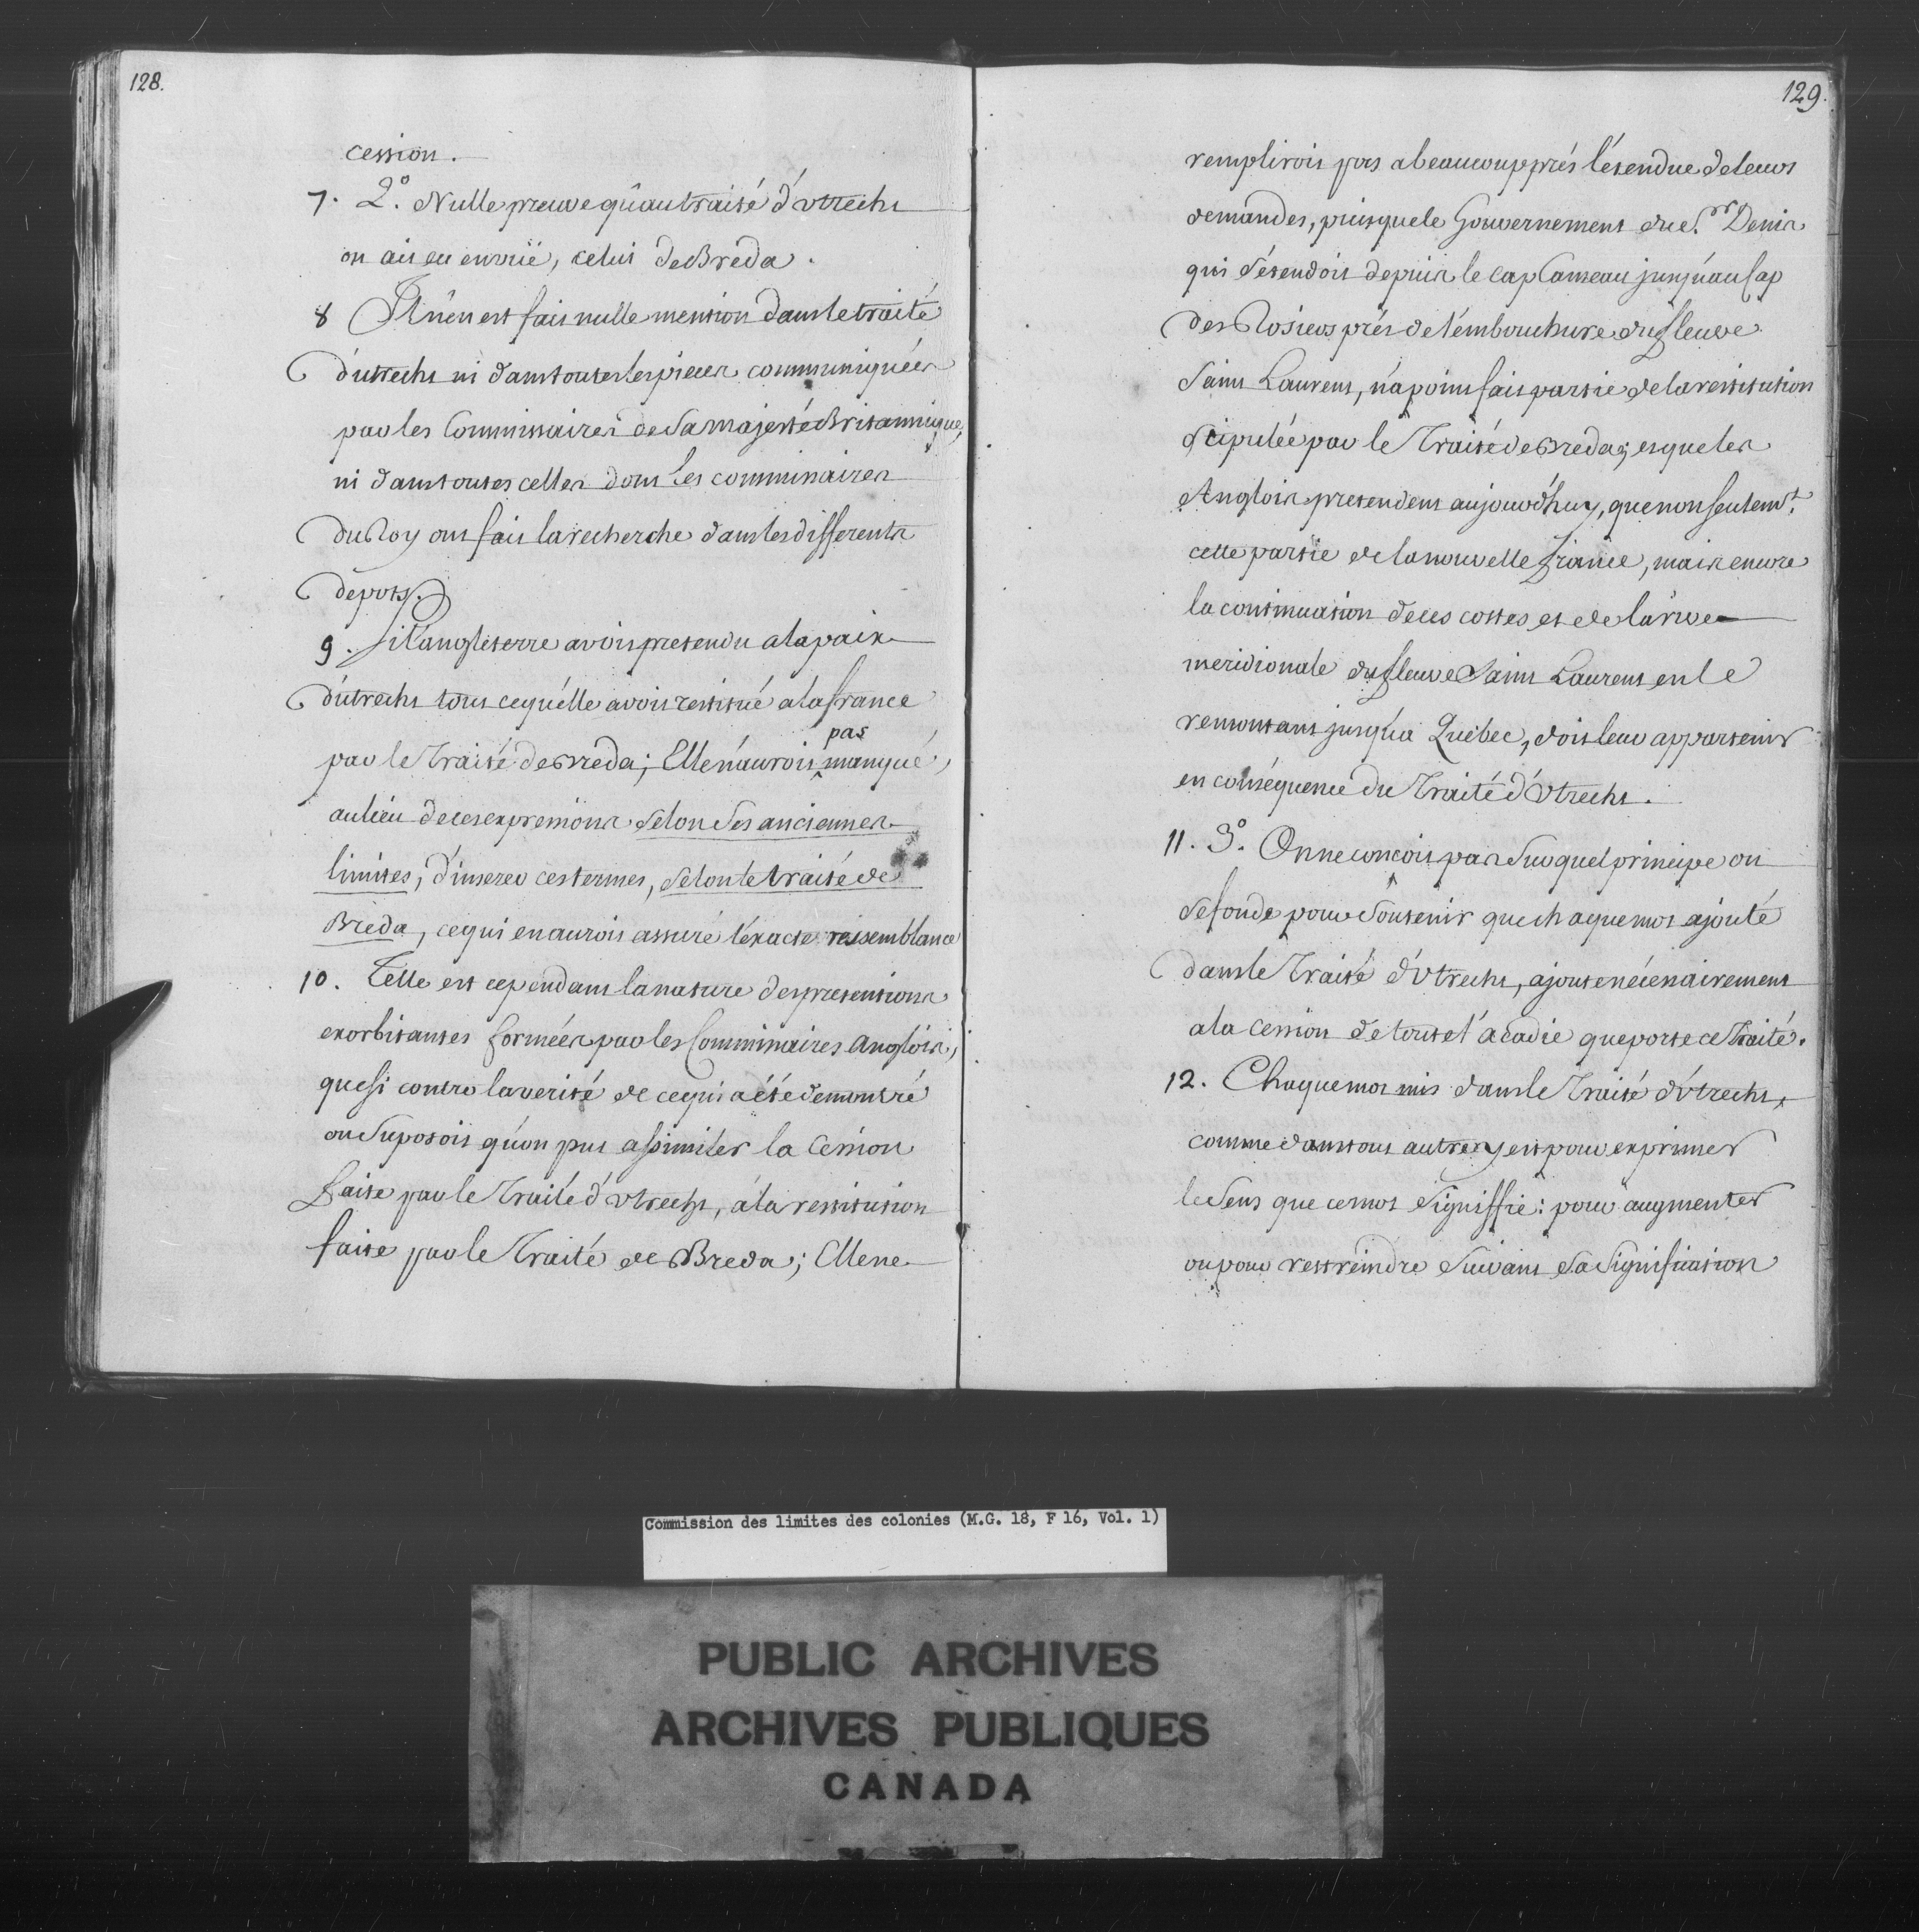 128.
cession.
7. 2.º Nulle preuve qu'au traité d'Utrecht
on ait eu en vüe, celui de Breda.
8 Il n'en est fait nulle mention dans le traité
d'utrecht ni dans toutes les pieces communiquées
par les Commissaires de Sa Majesté Britannique,
ni dans toutes celles dont les commissaires
du Roy ont fait la recherche dans les differents
depots.
9. Si l'angleterre avoit pretendu a la paix
d'utrecht tout ce qu'elle avoit restitué a la france
par le Traité de Breda; Elle n'auroit pas manqué,
au lieu de ces expressions selon ses anciennes
limites, d'inserer ces termes, selon le traité de
Breda, ce qui en auroit assuré l'éxacte ressemblance
10. Telle est cependant la nature des pretentions
exorbitantes formées par les Commissaires anglois,
que si contre la verité de ce qui a été demontré
on suposoit qu'on put assimiler la Cession
faite par le Traité d'Utrecht, à la restitution
faite par le Traité de Breda; Elle ne
129.
rempliroit pas a beaucoup prés l'étendue de leurs
demandes, puisque le Gouvernement du S.r Denis
qui s'étendoit depuis le cap Canseau jusqu'au Cap
des Rosiers prés de l'embouchure du fleuve
Saint Laurent, n'a point fait partie de la restitution
stipulée par le Traité de Breda; et que les
Anglois pretendent aujourd'huy, que non seulem.t
cette partie de la nouvelle france, mais encore
la continuation de ces costes et de la rive
meridionale du fleuve Saint Laurent en le
remontant jusqu'a Quebec, doit leur appartenir
en conséquence du Traité d'Utrecht.
11. 3.º On ne concoit pas sur quel principe on
se fonde pour soutenir que chaque mot ajouté
dans le Traité d'Utrecht, ajoute nécessairement
a la cession de toute l'acadie que porte ce Traité.
12. Chaque mot mis dans le Traité d'Utrecht,
comme dans tout autre, y est pour exprimer
le sens que ce mot signiffie: pour augmenter
ou pour restreindre suivant sa signification
Commission des limites des colonies (M.G. 18, F 16, Vol. 1)
PUBLIC ARCHIVES
ARCHIVES PUBLIQUES
CANADA